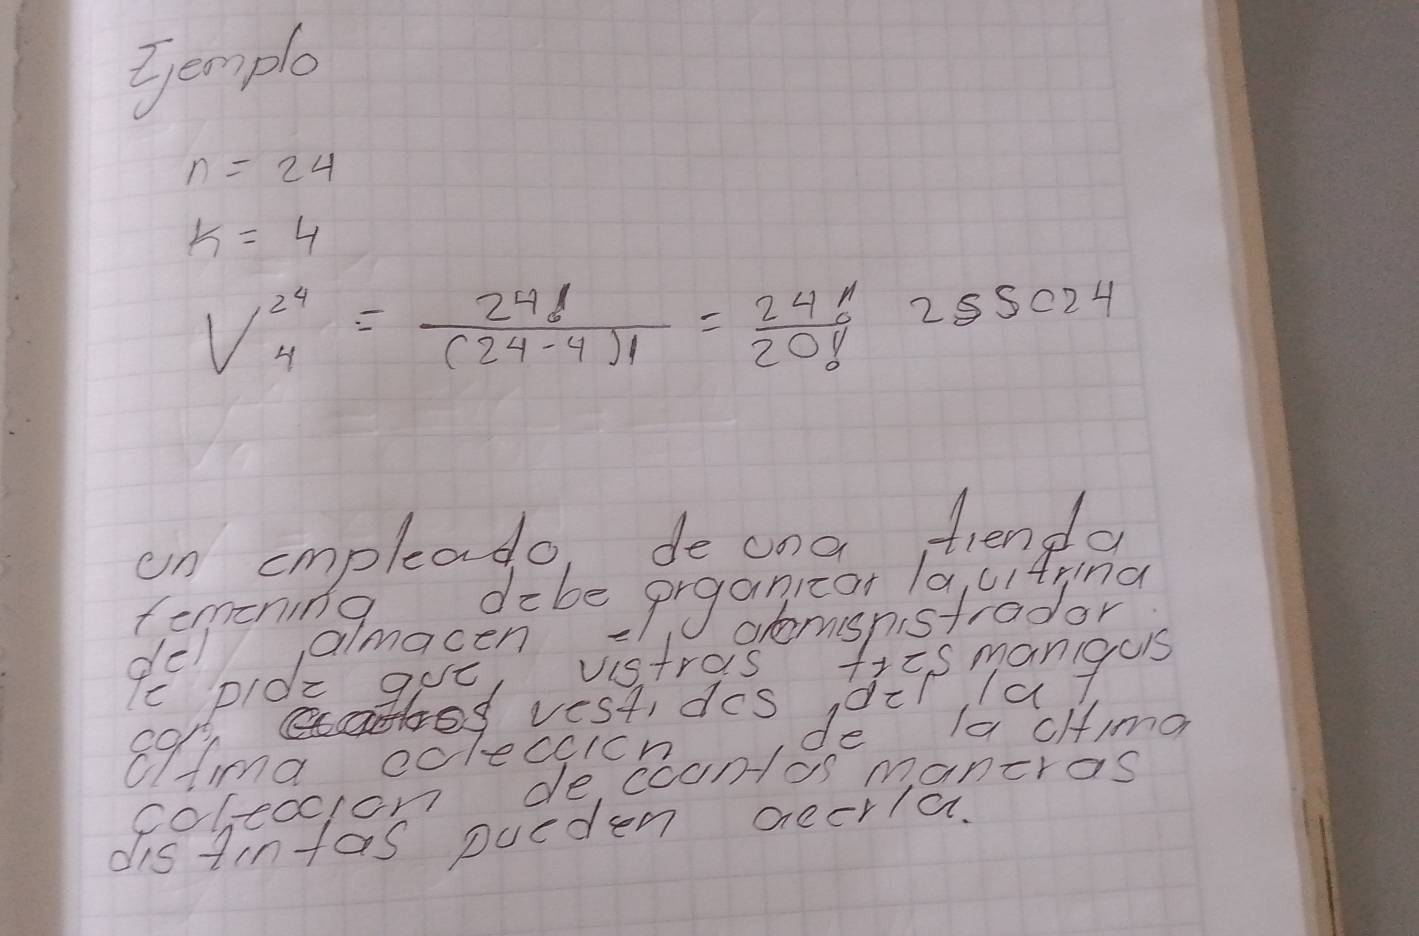 Ejemplo
n = 24
k = 4
V 24 4 = 24! / (24-4)! = 24! / 20! 255024
un empleado, de una tienda
femenina debe organizar la vitrina
del almacen el admisnistrador
le pide que, vistras tres maniquis
con vestidos del la
ultima coleccion de la ultima
coleccion de cuantas maneras
distintas pueden aecrla.